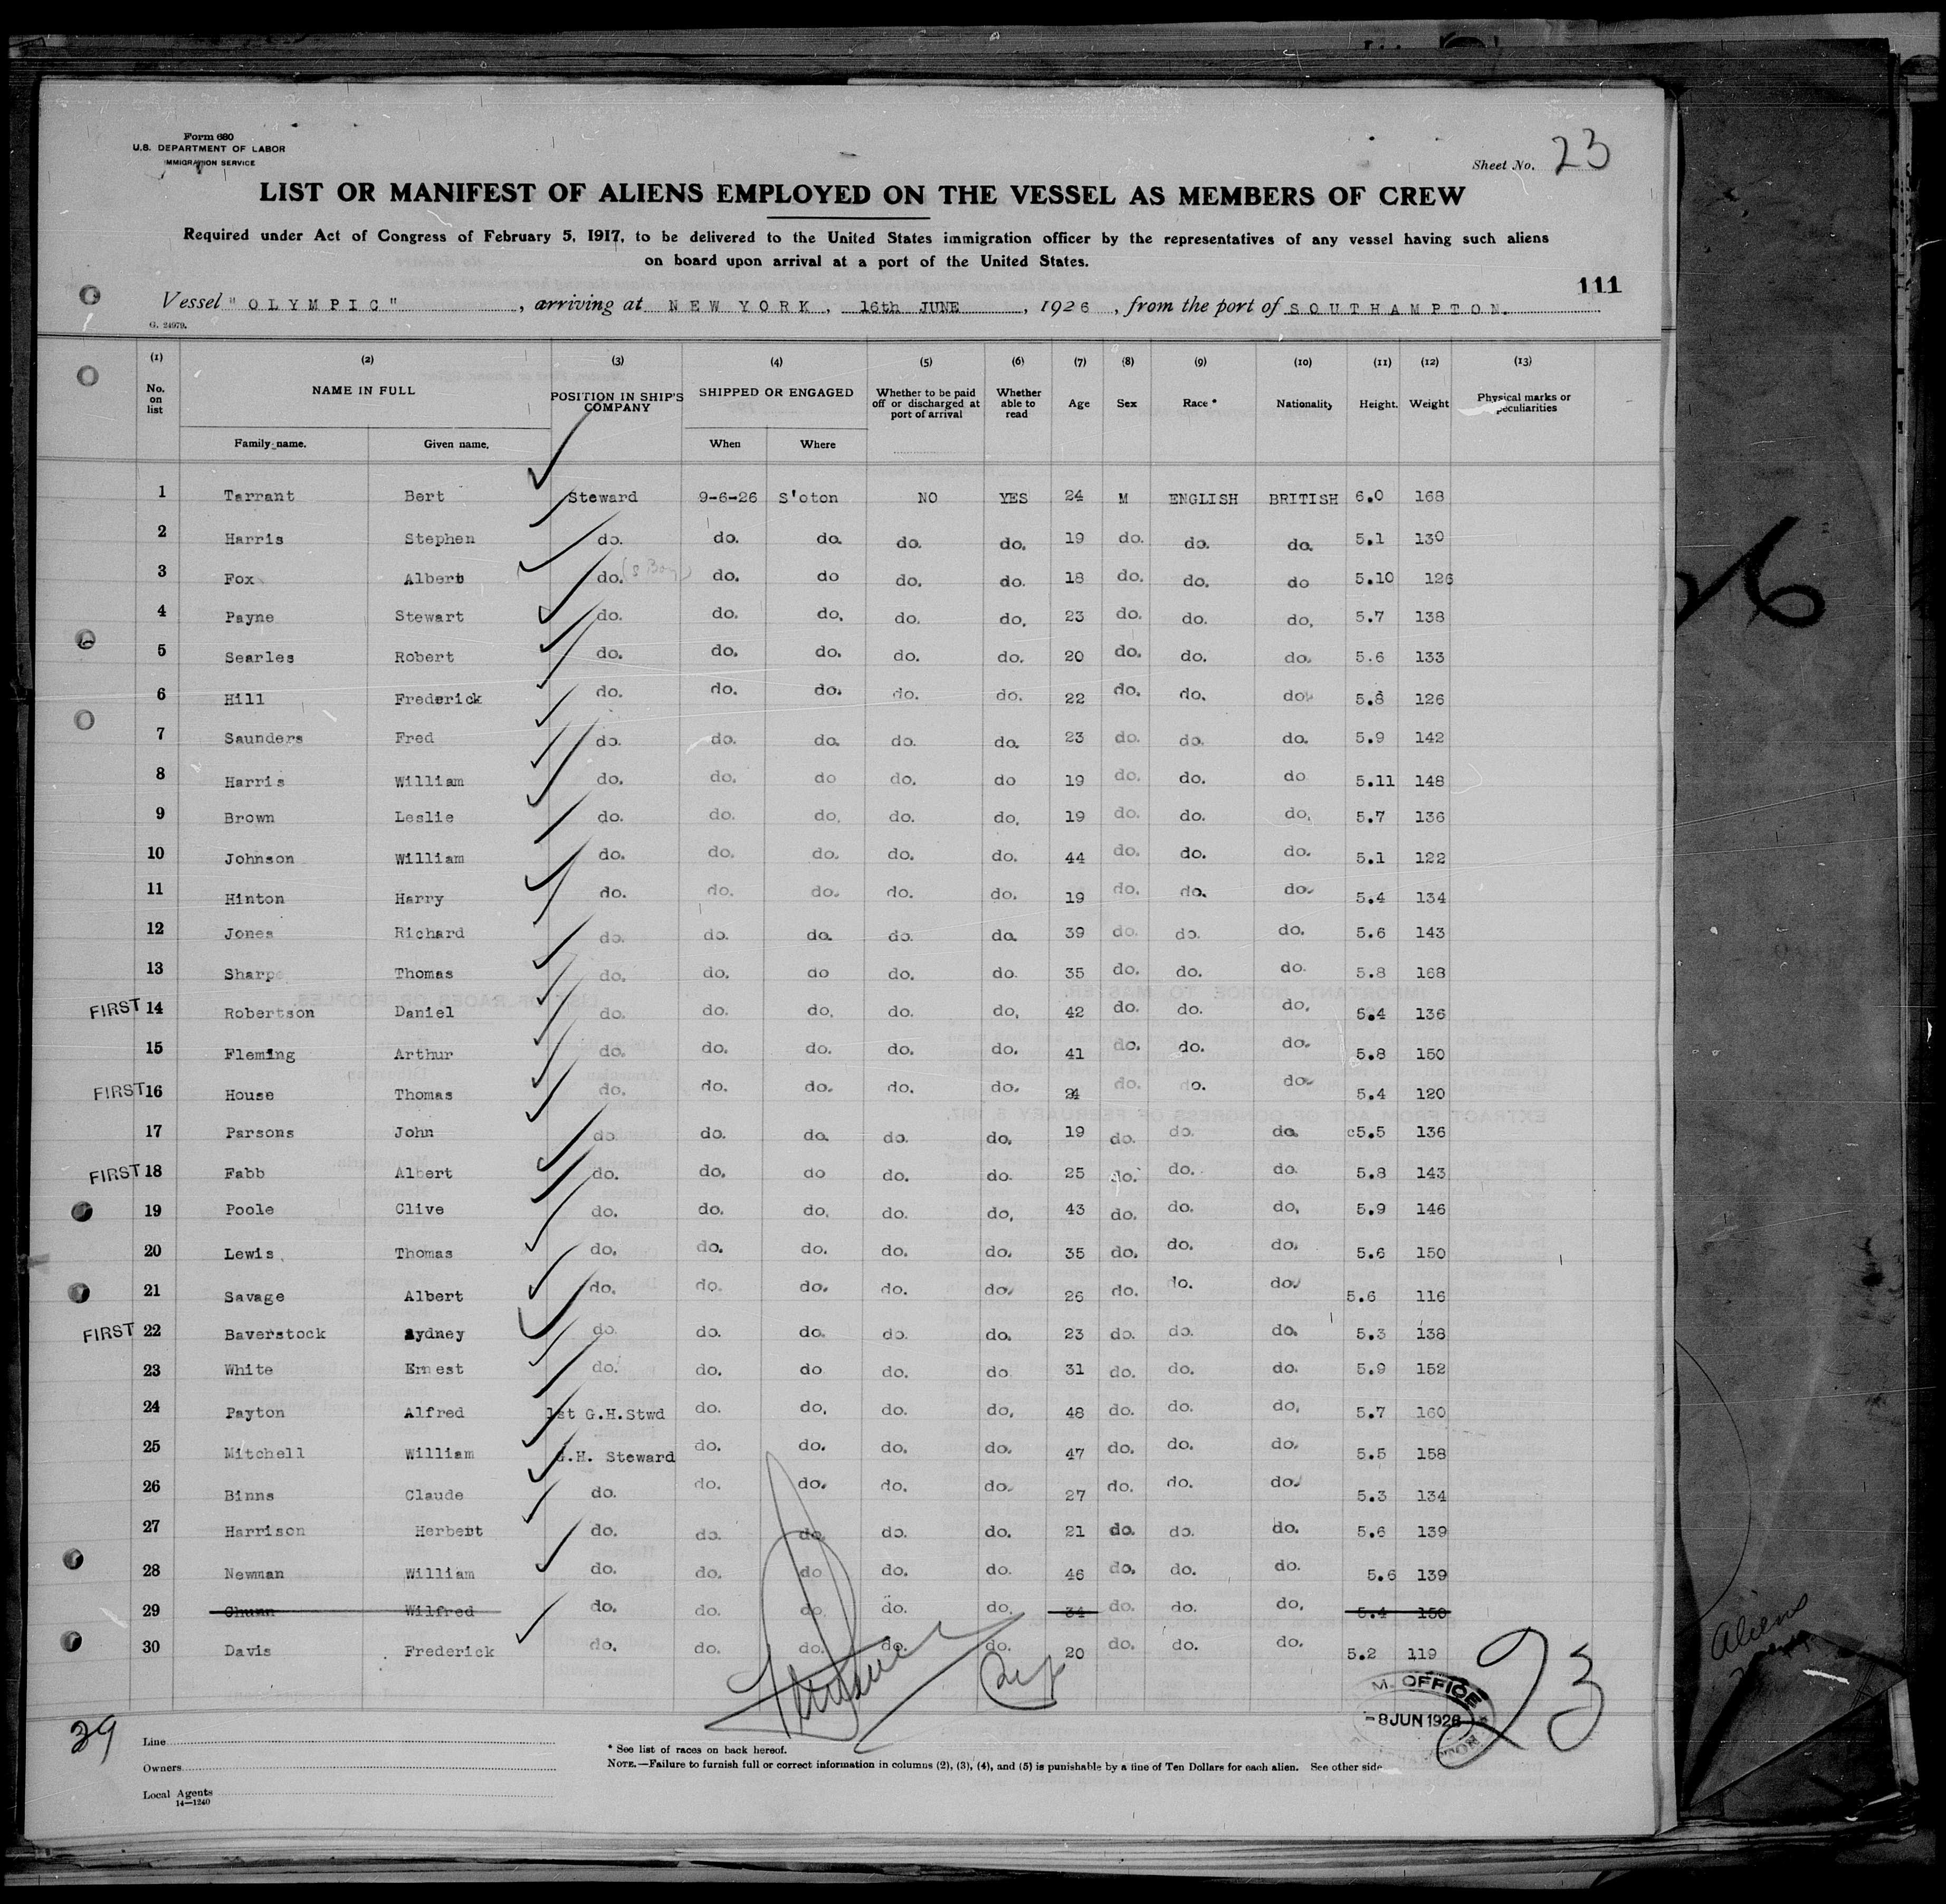 Form 680
U.S. DEPARTMENT OF LABOR
IMMIGRATION SERVICE
Sheet No. 23
LIST OR MANIFEST OF ALIENS EMPLOYED ON THE VESSEL AS MEMBERS OF CREW
Required under Act of Congress of February 5, 1917, to be delivered to the United States immigration officer by the representatives of any vessel having such aliens
on board upon arrival at a port of the United States.
111
Vessel "OLYMPIC", arriving at NEW YORK, 16th JUNE, 1926, from the port of SOUTHAMPTON.
G. 24979.
(1) (2) (3) (4) (5) (6) (7) (8) (9) (10) (11) (12) (13)
No. on list NAME IN FULL POSITION IN SHIP'S COMPANY SHIPPED OR ENGAGED Whether to be paid off or discharged at port of arrival Whether able to read Age Sex Race * Nationality Height. Weight Physical marks or peculiarities
Family name. Given name. When Where
1 Tarrant Bert Steward 9-6-26 S'oton NO YES 24 M ENGLISH BRITISH 6.0 168
2 Harris Stephen do. do. do. do. do. 19 do. do. do. 5.1 130
3 Fox Albert do. (S Boy) do. do do. do. 18 do. do. do 5.10 126
4 Payne Stewart do. do. do. do. do. 23 do. do. do. 5.7 138
5 Searles Robert do. do. do. do. do. 20 do. do. do. 5.6 133
6 Hill Frederick do. do. do. do. do. 22 do. do. do. 5.8 126
7 Saunders Fred do. do. do. do. do. 23 do. do. do. 5.9 142
8 Harris William do. do. do do. do 19 do. do. do 5.11 148
9 Brown Leslie do. do. do. do. do. 19 do. do. do. 5.7 136
10 Johnson William do. do. do. do. do. 44 do. do. do. 5.1 122
11 Hinton Harry do. do. do. do. do. 19 do. do. do. 5.4 134
12 Jones Richard do. do. do. do. do. 39 do. do. do. 5.6 143
13 Sharpe Thomas do. do. do do. do. 35 do. do. do. 5.8 168
FIRST 14 Robertson Daniel do. do. do. do. do. 42 do. do. do. 5.4 136
15 Fleming Arthur do. do. do. do. do. 41 do. do. do. 5.8 150
FIRST 16 House Thomas do. do. do. do. do. do. do. do. 5.4 120
17 Parsons John do. do. do. do. do. 19 do. do. do. c5.5 136
FIRST 18 Fabb Albert do. do. do do. do. 25 do. do. do. 5.8 143
19 Poole Clive do. do. do. do. do. 43 do. do. do. 5.9 146
20 Lewis Thomas do. do. do. do. do. 35 do. do. do. 5.6 150
21 Savage Albert do. do. do. do. do. 26 do. do. do. 5.6 116
FIRST 22 Baverstock Sydney do. do. do. do. do. 23 do. do. do. 5.3 138
23 White Ernest do. do. do do. do 31 do. do. do. 5.9 152
24 Payton Alfred 1st G.H.Stwd do. do. do. do. 48 do. do. do. 5.7 160
25 Mitchell William G.H. Steward do. do. do. do. 47 do. do. do. 5.5 158
26 Binns Claude do. do. do. do. do. 27 do. do. do. 5.3 134
27 Harrison Herbert do. do. do. do. do. 21 do. do. do. 5.6 139
28 Newman William do. do. do do. do. 46 do. do. do. 5.6 139
29 Chunn Wilfred do. do. do. do. do. 34 do. do. do. 5.4 150
30 Davis Frederick do. do. do. do. do. 20 do. do. do. 5.2 119
M. OFFICE
-8 JUN 1926
23
39
Line
Owners
Local Agents
14—1240
* See list of races on back hereof.
NOTE.—Failure to furnish full or correct information in columns (2), (3), (4), and (5) is punishable by a fine of Ten Dollars for each alien. See other side
26
Aliens